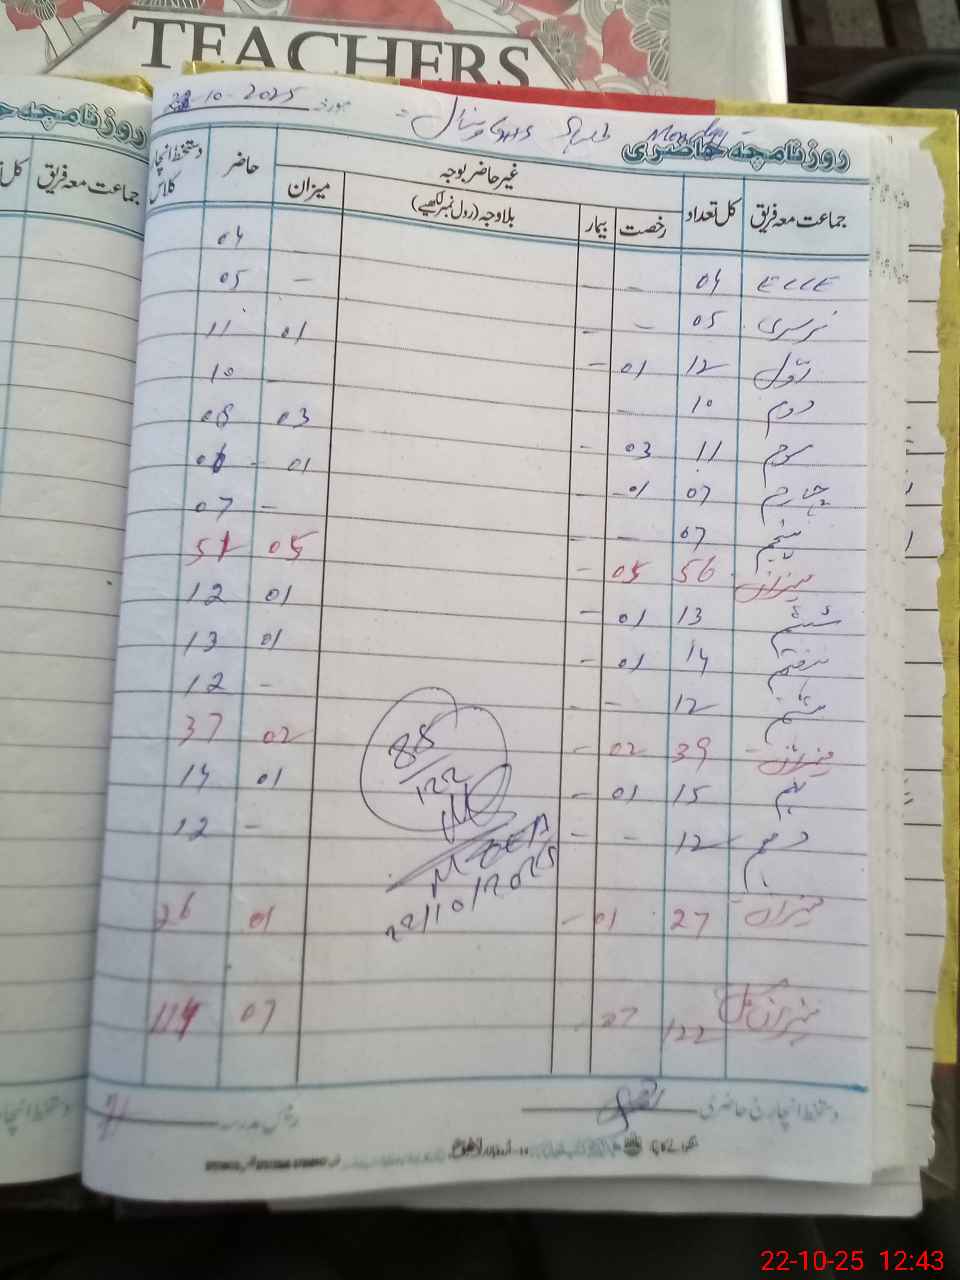 TEACHERS
روزنامچہ حاضری
10-2025 مورخہ
Monday
جماعت معہ فریق کل تعداد غیر حاضر بوجہ حاضر دستخط انچارج کلاس
رخصت بیمار بلاوجہ (رول نمبر لکھیے) میزان
ECCE 04 - - 04
نرسری 05 - - - 05
اوّل 12 01 - 01 11
دوم 10 - - 10
سوم 11 03 - 03 08
چہارم 07 01 - 01 06
پنجم 07 - - - 07
میزان 56 05 - 05 51
ششم 13 01 - 01 12
ہفتم 14 01 - 01 13
ہشتم 12 - - - 12
میزان 39 02 - 02 37
نہم 15 01 - 01 14
دہم 12 - - - 12
میزان 27 01 - 01 26
میزان کل 122 07 - 07 114
88/122
MEA
22/10/2025
دستخط انچارج حاضری
رئیس مدرسہ
جماعت معہ فریق
22-10-25 12:43